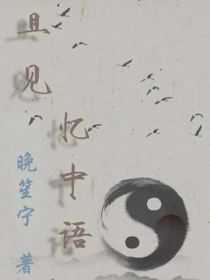 且见
忆中语
晚笙宁 著